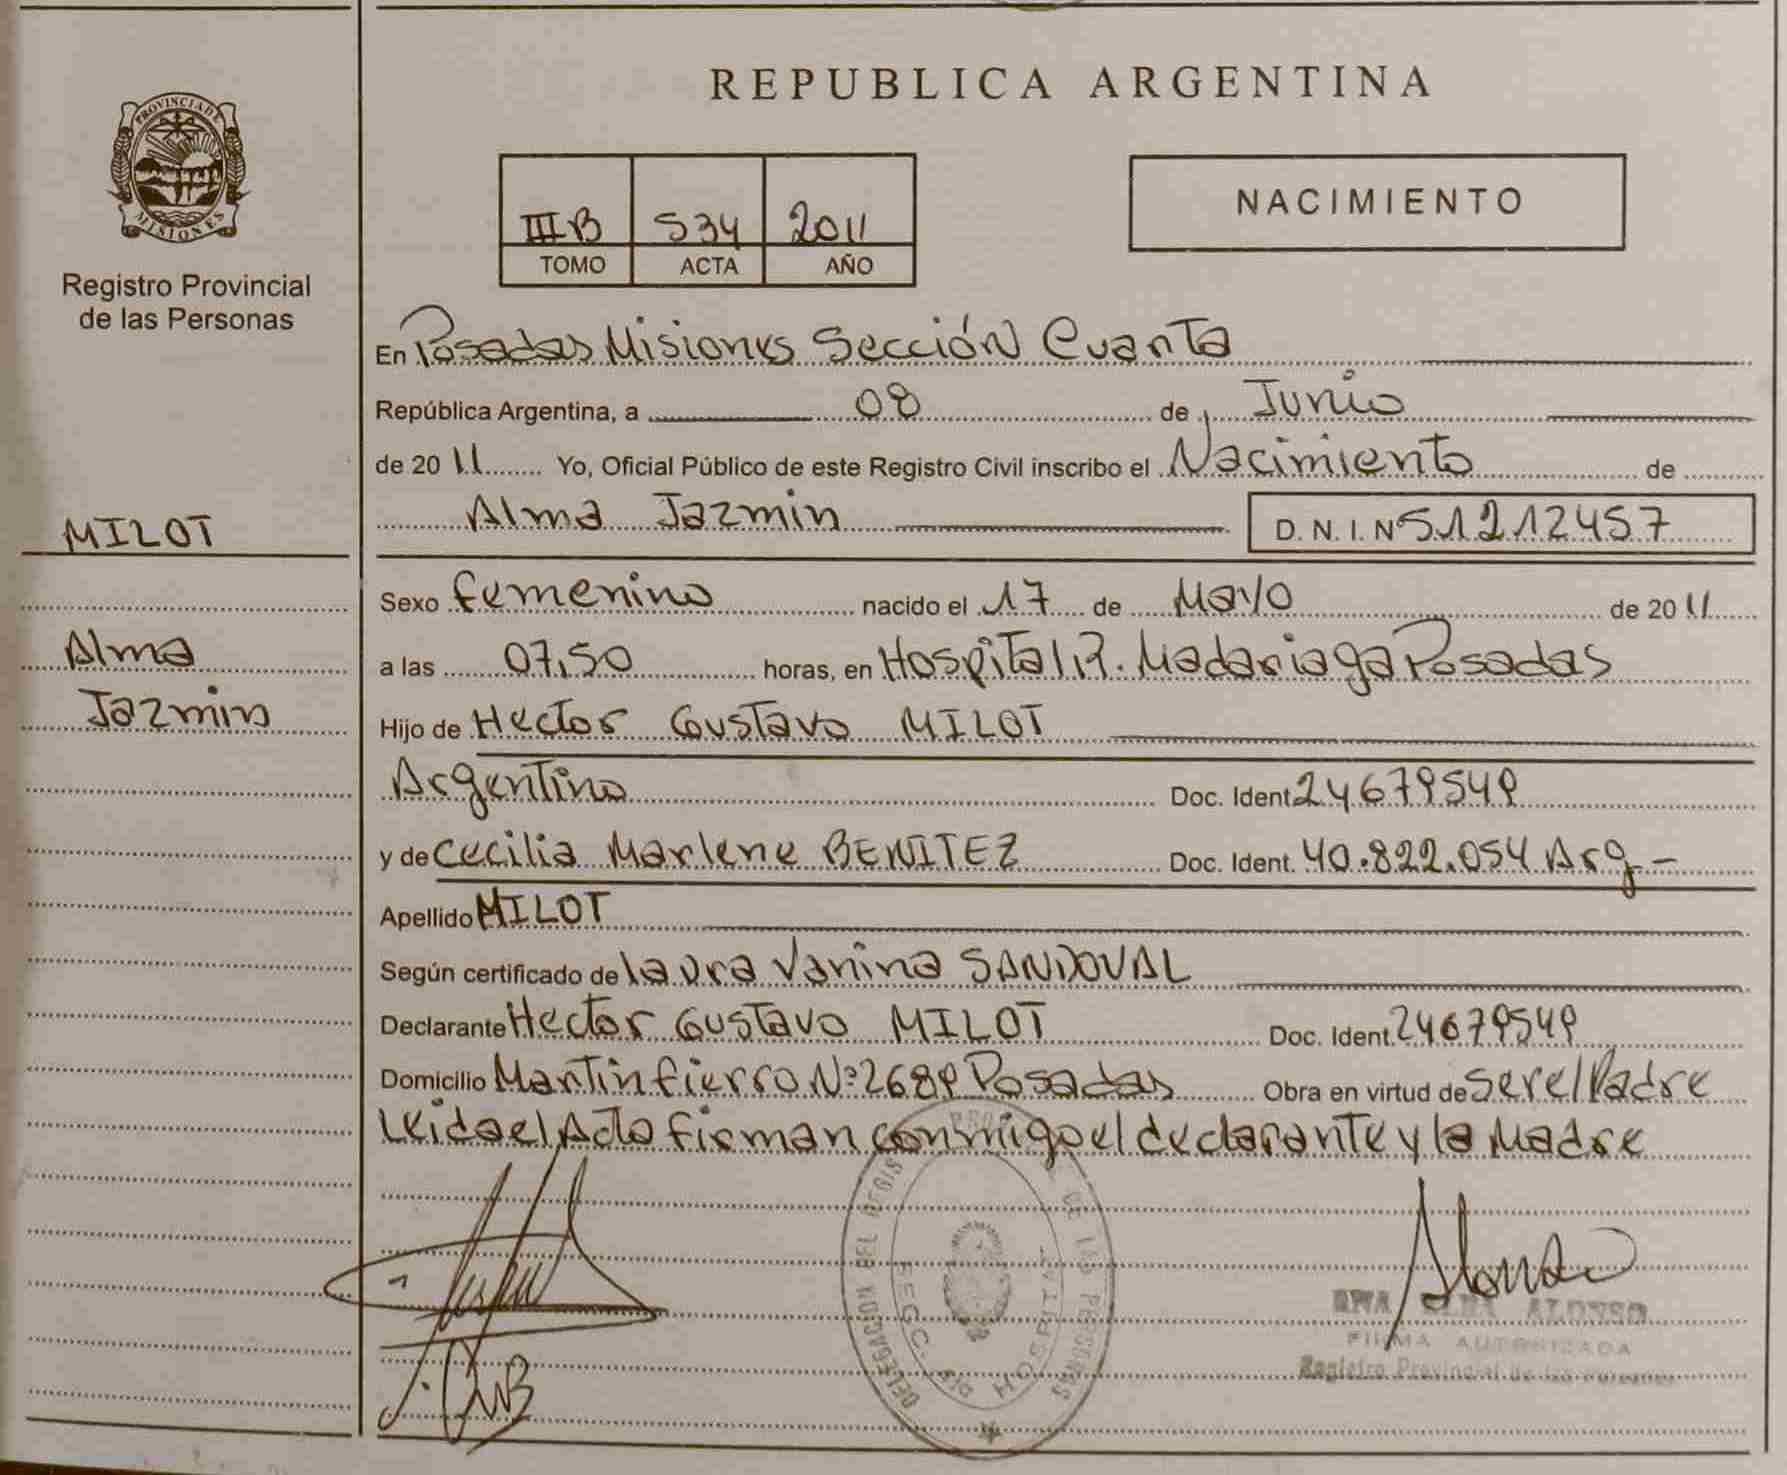 REPUBLICA ARGENTINA
PROVINCIA DE
MISIONES
Registro Provincial
de las Personas
III B 534 2011
TOMO ACTA AÑO
NACIMIENTO
En Posadas Misiones Sección Cuarta
República Argentina, a 08 de Junio
de 2011 Yo, Oficial Público de este Registro Civil inscribo el Nacimiento de
Alma Jazmin D. N. I. N 51212457
MILOT
Alma
Jazmin
Sexo femenino nacido el 17 de Mayo de 2011
a las 07,50 horas, en Hospital R. Madariaga Posadas
Hijo de Hector Gustavo MILOT
Argentino Doc. Ident. 24679549
y de Cecilia Marlene BENITEZ Doc. Ident. 40.822.054 Arg-
Apellido MILOT
Según certificado de Laura Vanina SANDOVAL
Declarante Hector Gustavo MILOT Doc. Ident. 24679549
Domicilio Martin fierro Nº 2689 Posadas Obra en virtud de ser el Padre
Leida el Acta firman conmigo el declarante y la Madre
DELEGACION DEL REGIS DE LAS PERSONAS
SECC. HOSPITAL
ALONSO
FIRMA AUTORIZADA
Registro Provincial de las Personas